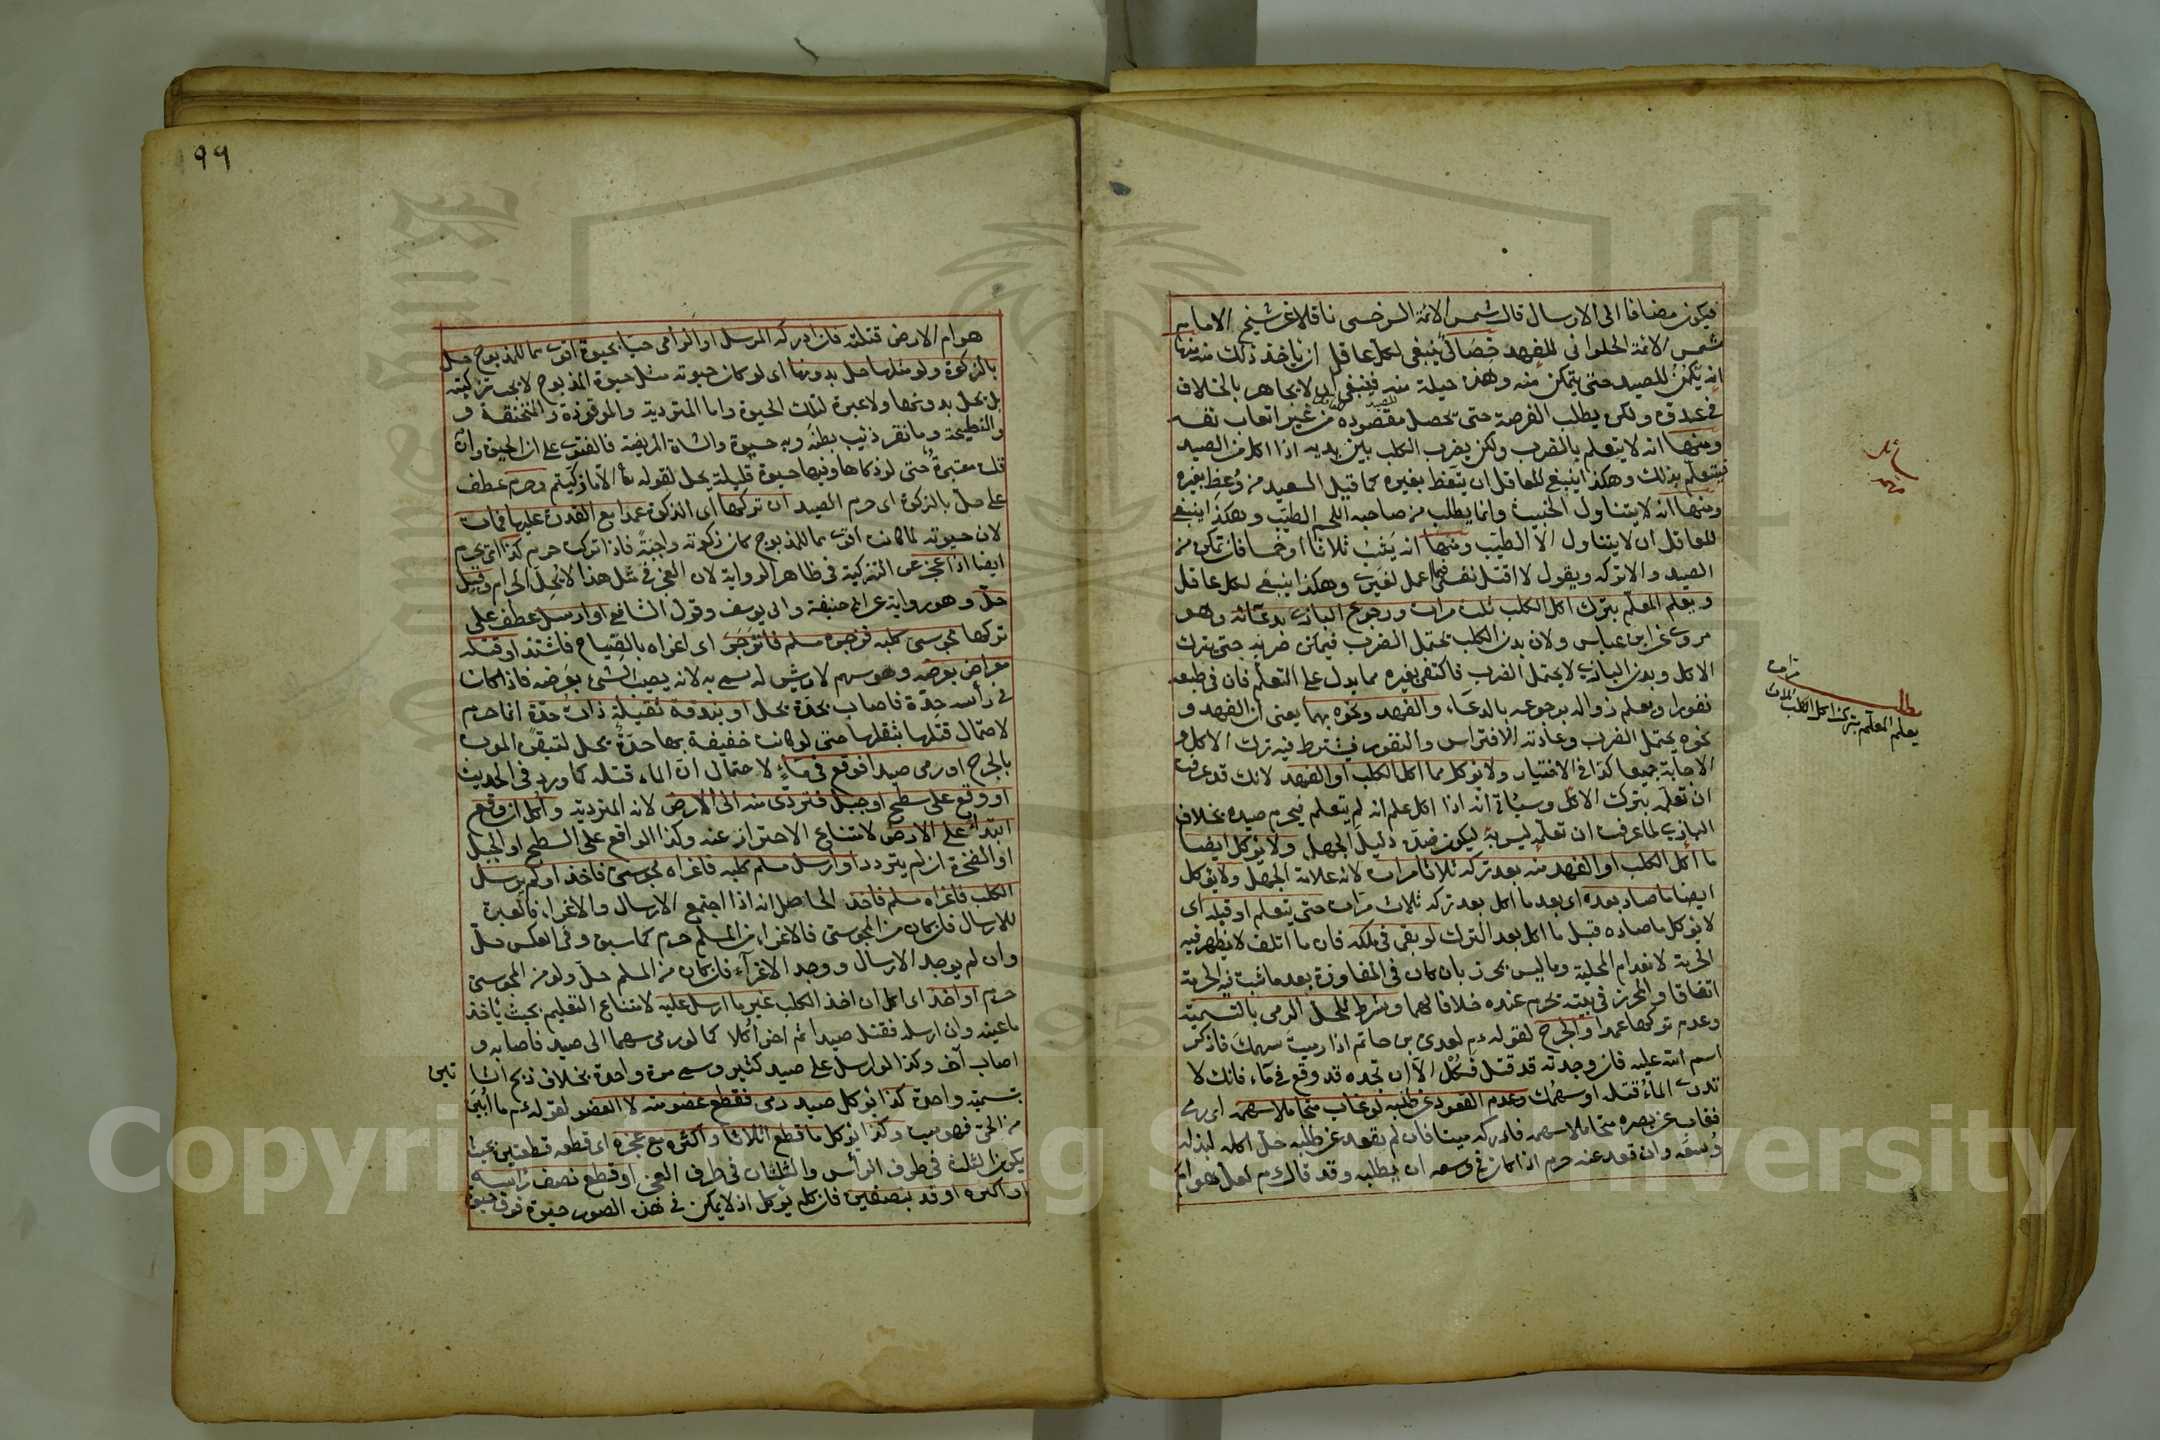 فيكون مضافا الى الارسال قال شمس الائمة السرخسى ناقلا عن شيخه الامام
شمس الائمة الحلوانى للفهد خصال ينبغى لكل عاقل ان ياخذ ذلك منه منها
انه يكمن للصيد حتى يتمكن منه وهذه حيلة منه فينبغى ان لا يجاهر بالخلاف
فى عدوه ولكن يطلب الفرصة حتى تحصل مقصوده من غير اتعاب نفسه
ومنها انه لا يتعلم بالضرب ولكن يضرب الكلب بين يديه اذا اكل من الصيد
فيتعلم بذلك وهكذا ينبغى للعاقل ان يتعظ بغيره كما قيل السعيد من وعظ بغيره
ومنها انه لا يتناول الخبيث وانما يطلب من صاحبه اللحم الطيب وهكذا ينبغى
للعاقل ان لا يتناول الا الطيب ومنها انه يثب ثلاثا او خمسا فان تمكن من
الصيد والا تركه ويقول لا اقتل نفسى فيما اعمل لغيرى وهكذا ينبغى لكل عاقل
ويعلم المعلم بترك اكل الكلب ثلث مرات ورجوع البازى بدعائه وهو
مروى عن ابن عباس ولان بدن الكلب يحتمل الضرب فيمكن ضربه حتى يترك
الاكل وبدن البازى لا يحتمل الضرب فاكتفى بغيره مما يدل على التعلم فان فى طبعه
نفورا ويعلم زواله برجوعه بالدعاء والفهد ونحوه بهما يعنى ان الفهد و
نحوه يحتمل الضرب وعادته الافتراس والنفور فيشترط فيه ترك الاكل و
الاجابة جميعا كذا فى الاختيار ولا يؤكل مما اكل الكلب او الفهد لانك قد عرفت
ان تعلمه بترك الاكل وسياتى انه اذا اكل علم انه لم يتعلم فيحرم صيده بخلاف
البازى لما عرفت ان تعلمه ليس به ليكون ضده دليل الجهل ولا يؤكل ايضا
ما اكل الكلب او الفهد منه بعد تركه ثلاثا مرات لانه علامة الجهل ولا يؤكل
ايضا ما صاد بعده اى بعد ما اكل بعد تركه ثلاث مرات حتى يتعلم او قبله اى
لا يؤكل ما صاده قبل ما اكل بعد الترك لو بقى فى ملكه فان ما اتلف لا يظهر فيه
الحرمة لانعدام المحلية وما ليس بمحرز بان كان فى المفاوزة بعد ما ثبت فيه الحرمة
اتفاقا والمحرز فى بيته يحرم عنده خلافا لهما وشرط للحل الرمى بالتسمية
وعدم تركها عمدا والجرح لقوله عم لعدى بن حاتم اذا رميت سهمك فاذكر
اسم الله عليه فان وجدته قد قتل فكل الا ان تجده قد وقع فى ماء فانك لا
تدرى الماء قتله او سهمك وعدم القعود عن طلبه لو غاب متحاملا سهمه اى رمى
فغاب عن بصره متحاملا سهمه فادركه ميتا فان لم يقعد عن طلبه حل اكله لبذله
وسعه وان قعد عنه حرم اذا كان فى وسعه ان يطلبه وقد قال عم لعل هوام
مطلب
يعلم المعلم بترك اكل الكلب ثلاث
مرات
٩٩
هوام الارض قتلته فان ادركه المرسل او الرامى حيا بحيوة اقوى مما للمذبوح حل
بالذكوة ولو مثلها حل بدونها اى لو كان حيوته مثل حيوة المذبوح لا يجب تزكيته
بل يحل بدونها ولا عبرة لتلك الحيوة واما المتردية والموقوذة والمنخنقة و
والنطيحة وما نقر ذئب بطنه وبه حيوة والشاة المريضة فالفتوى على ان الحيوة وان
قلت معتبرة حتى لو ذكاها وفيها حيوة قليلة يحل لقوله تعا الا ما ذكيتم وحرم عطف
على حل بالذكوة اى حرم الصيد ان تركها اى الذكوة عمدا مع القدرة عليها فمات
لان حيوته لما كانت اقوى مما للمذبوح كان زكوته واجبة فاذا ترك حرم كذا اى يحرم
ايضا اذا عجز عن التزكية فى ظاهر الرواية لان العجز فى مثل هذا لا يحل الحرام وقيل
حل وهو رواية عن ابى حنيفة وابى يوسف وقول الشافعى او ارسل عطف على
تركها مجوسى كلبه فزجره مسلم فانزجر اى اغراه بالصياح فاشتد او قتله
معراض بعرضه وهو سهم لا ريش له سمى به لانه يصيب الشئ بعرضه فاذا كان
فى رأسه حدة فاصاب بحده يحل او بندقة ثقيلة ذات حدة انما حرم
لاحتمال قتلها بثقلها حتى لو كانت خفيفة بها حدة يحل لتيقن الموت
بالجرح او رمى صيدا فوقع فى ماء لاحتمال ان الماء قتله كما ورد فى الحديث
او وقع على سطح او جبل فتردى منه الى الارض لانه المتردية واكل ان وقع
ابتداء على الارض لامتناع الاحتراز عنه وكذا الواقع على السطح او الجبل
او الصخرة ان لم يتردد او ارسل مسلم كلبه فاغراه مجوسى فاخذ او لم يرسل
الكلب فاغراه مسلم فاخذ الحاصل انه اذا اجتمع الارسال والاغراء فالعبرة
للارسال فان كان من المجوسى فالاغراء من المسلم حرم كما سبق وفى العكس حل
وان لم يوجد الارسال ووجد الاغراء فان كان من المسلم حل ولو من المجوسى
حرم او اخذ اى اكل ان اخذ الكلب غير ما ارسل عليه لامتناع التعليم بحيث ياخذ
ما عينه وان ارسله فقتل صيدا ثم اخر اكلا كما لو رمى سهما الى صيد فاصابه و
اصاب آخر وكذا لو ارسل على صيد كثير وسمى مرة واحدة بخلاف ذبح الشا
تين
بتسمية واحدة كذا يؤكل صيد رمى فقطع عضو منه لا العضو لقوله عم ما ابين
من الحى فهو ميت وكذا يؤكل ما قطع اثلاثا واكثره مع عجزه اى قطعه قطعتين بحيث
يكون الثلث فى طرف الرأس والثلثان فى طرف العجز او قطع نصف رأسه
او اكثره او قد بنصفين فان كله يؤكل اذ لا يمكن فى هذه الصور حيوة فوق حيوة
Copyright © King Saud University